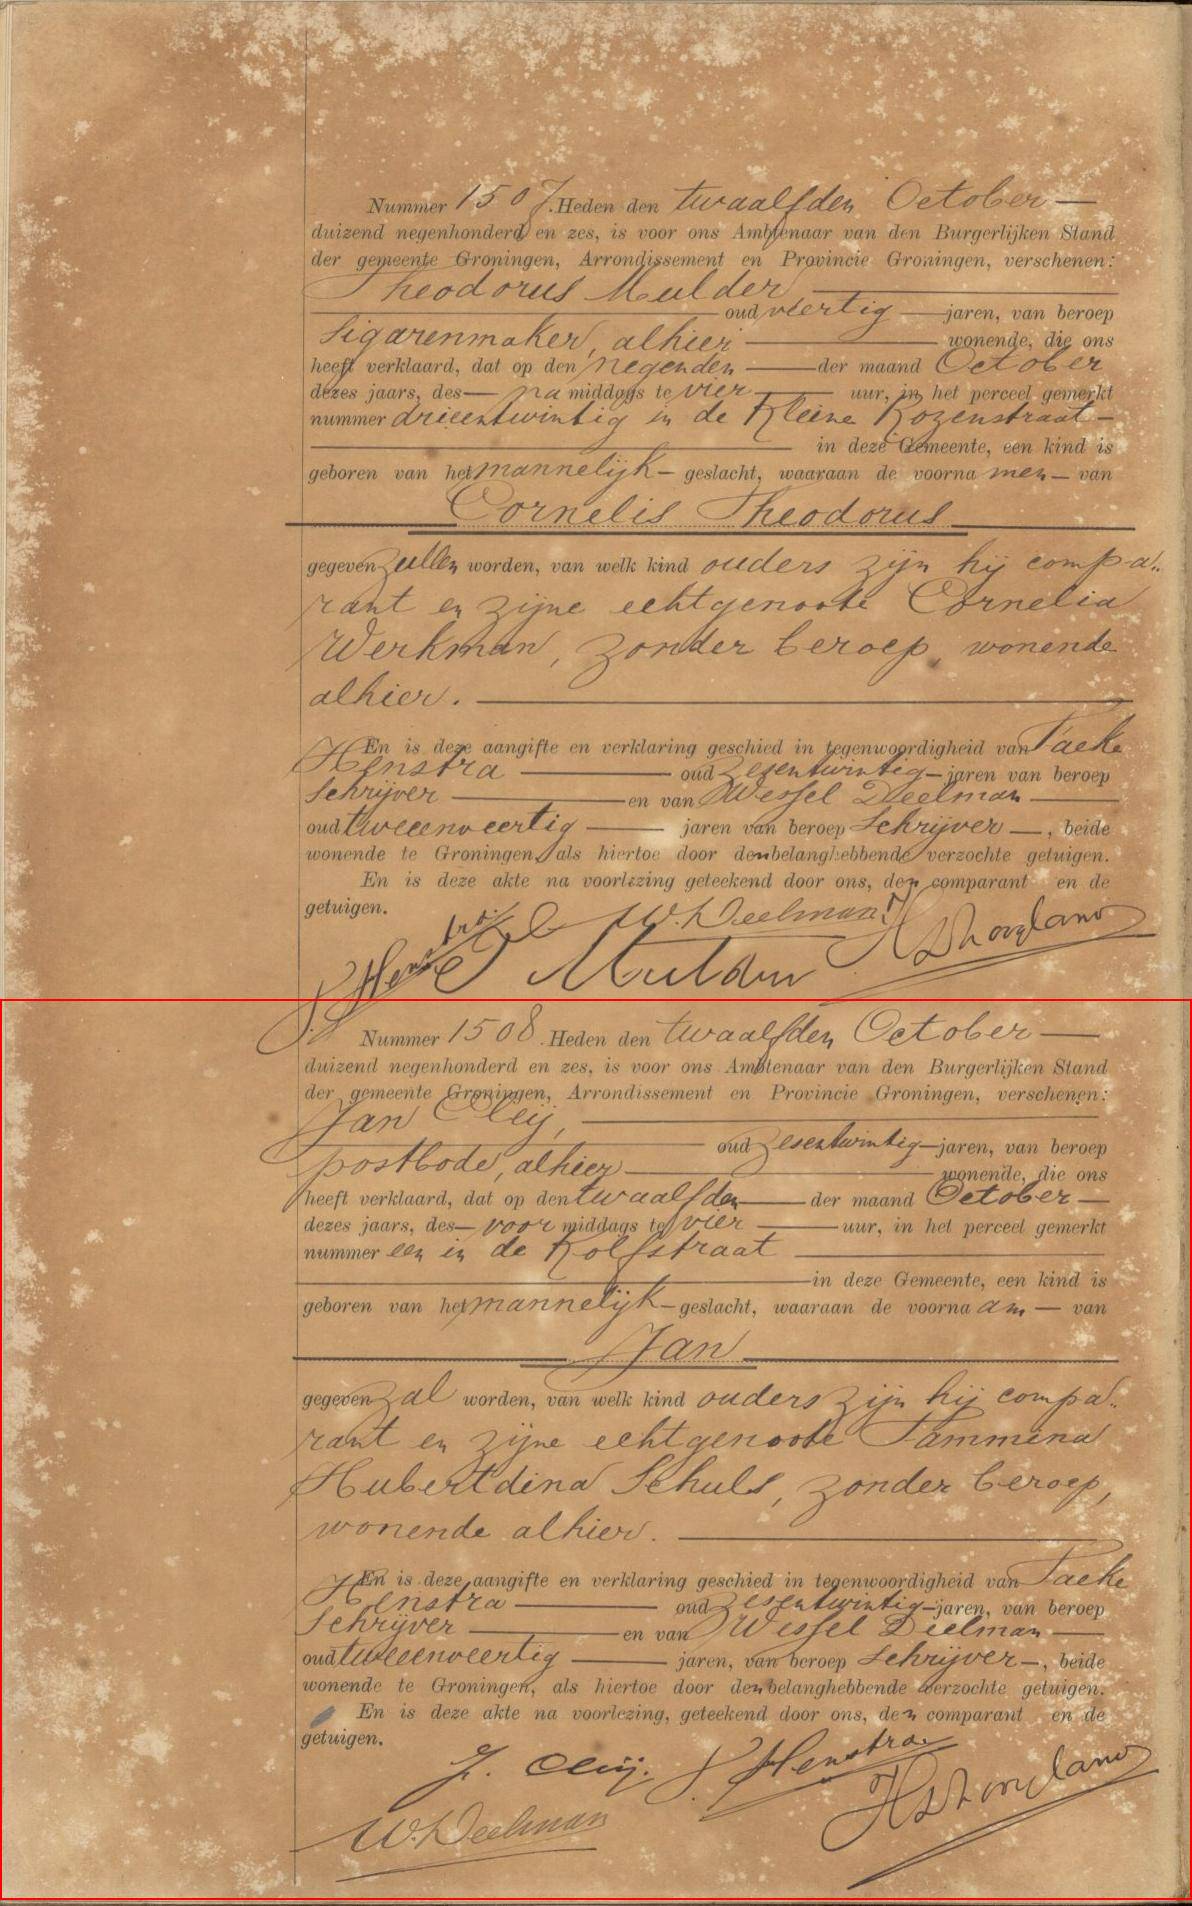 Nummer 1507. Heden den twaalfden October —
duizend negenhonderd en zes, is voor ons Ambtenaar van den Burgerlijken Stand
der gemeente Groningen, Arrondissement en Provincie Groningen, verschenen:
Theodorus Mulder
oud veertig jaren, van beroep
Sigarenmaker, alhier wonende, die ons
heeft verklaard, dat op den negenden der maand October
dezes jaars, des namiddags te vier uur, in het perceel gemerkt
nummer drieentwintig in de Kleine Rozenstraat
in deze Gemeente, een kind is
geboren van het mannelijk geslacht, waaraan de voornamen van
Cornelis Theodorus
gegeven zullen worden, van welk kind ouders zijn hij compa„
rant en zijne echtgenoote Cornelia
Werkman, zonder beroep, wonende
alhier.
En is deze aangifte en verklaring geschied in tegenwoordigheid van Taeke
Henstra oud zesentwintig jaren van beroep
Schrijver en van Wessel Deelman
oud tweeenveertig jaren van beroep Schrijver, beide
wonende te Groningen, als hiertoe door den belanghebbende verzochte getuigen.
En is deze akte na voorlezing geteekend door ons, den comparant en de
getuigen.
W. Deelman
Henstra Mulder
Nummer 1508. Heden den twaalfden October —
duizend negenhonderd en zes, is voor ons Ambtenaar van den Burgerlijken Stand
der gemeente Groningen, Arrondissement en Provincie Groningen, verschenen:
Jan Cleij,
oud zesentwintig jaren, van beroep
postbode, alhier wonende, die ons
heeft verklaard, dat op den twaalfden der maand October
dezes jaars, des voormiddags te vier uur, in het perceel gemerkt
nummer een in de Kolfstraat
in deze Gemeente, een kind is
geboren van het mannelijk geslacht, waaraan de voornaam van
Jan
gegeven zal worden, van welk kind ouders zijn hij compa„
rant en zijne echtgenoote Tammina
Hubertdina Schuls, zonder beroep,
wonende alhier.
En is deze aangifte en verklaring geschied in tegenwoordigheid van Taeke
Henstra oud zesentwintig jaren, van beroep
Schrijver en van Wessel Deelman
oud tweeenveertig jaren, van beroep Schrijver, beide
wonende te Groningen, als hiertoe door den belanghebbende verzochte getuigen.
En is deze akte na voorlezing, geteekend door ons, den comparant en de
getuigen.
J. Cleij. Henstra
W. Deelman